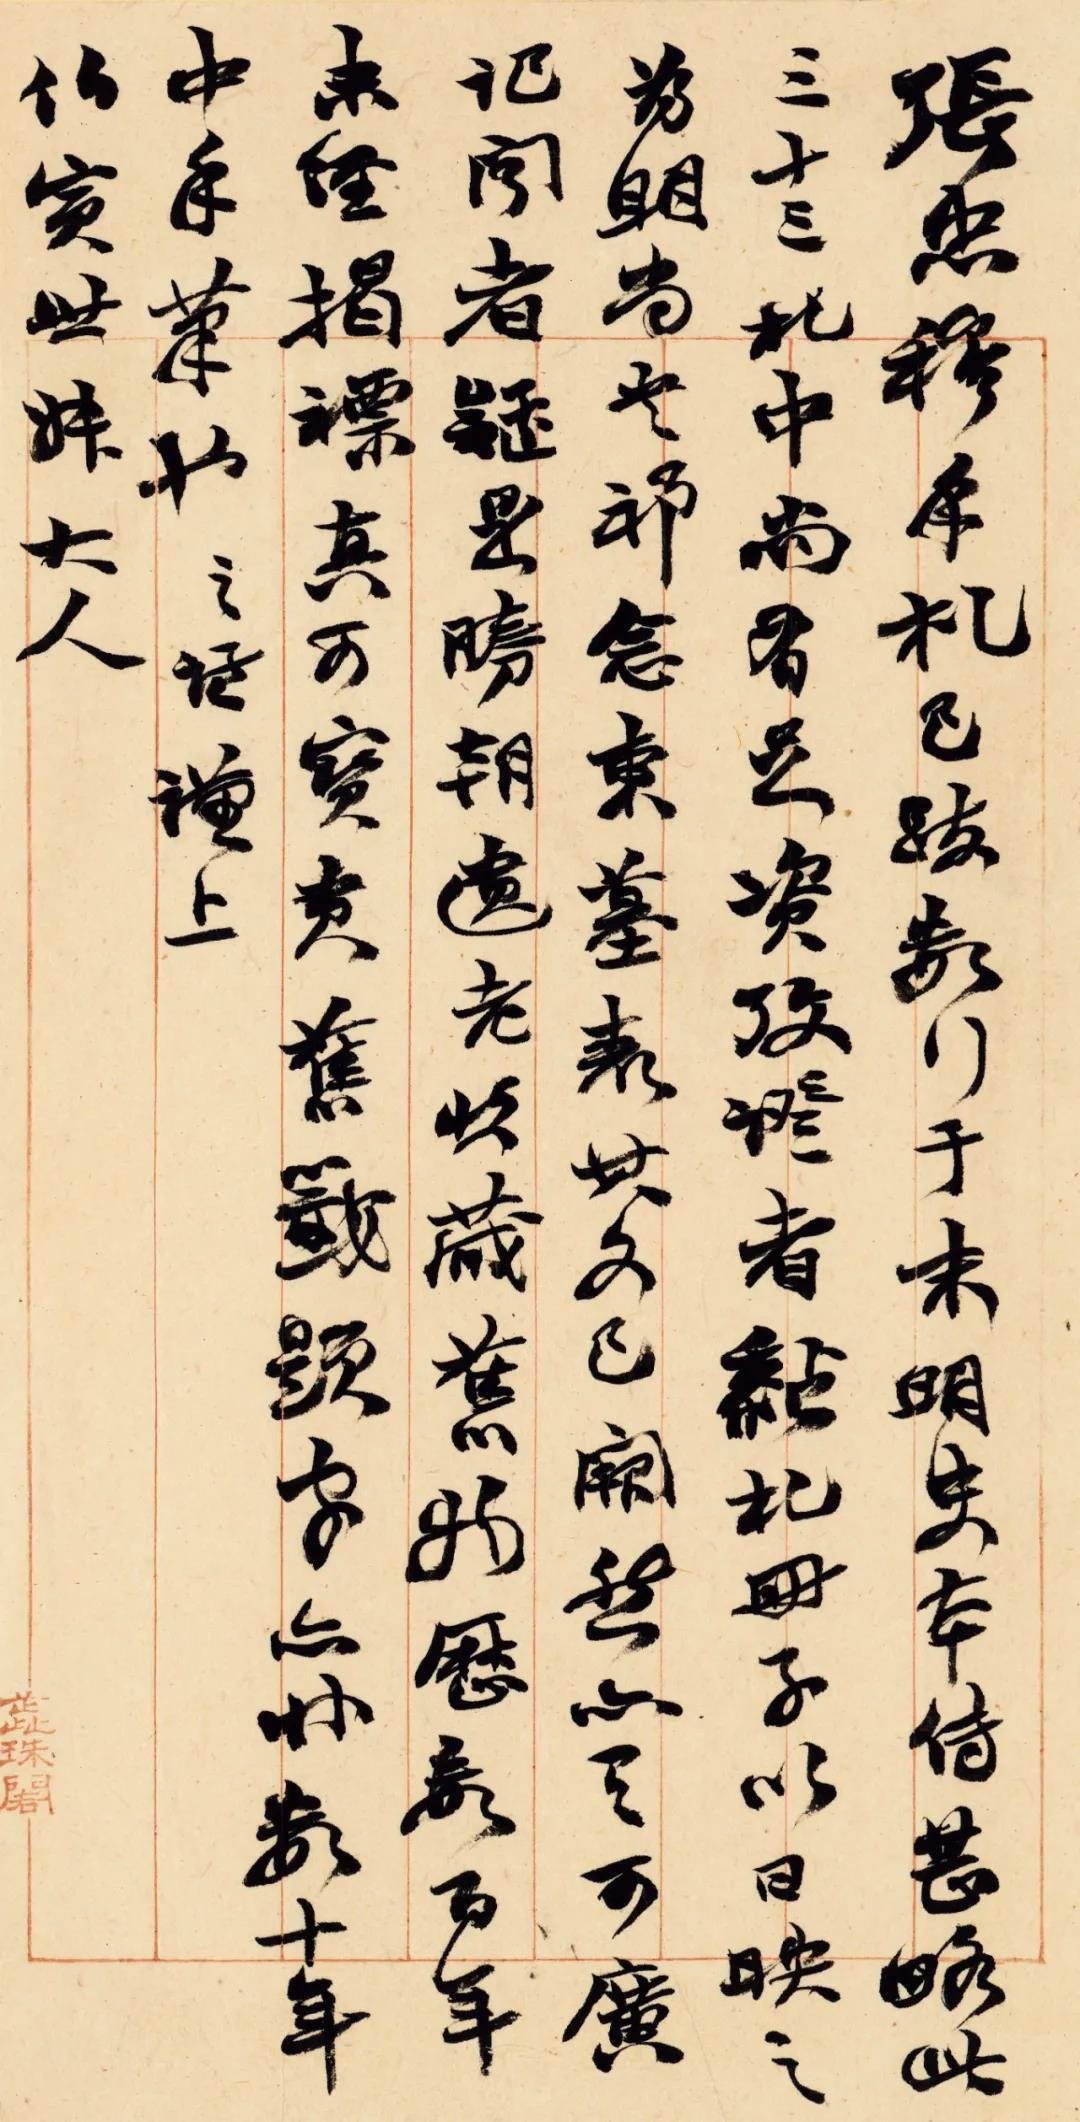 張忠穆手札已跋數行于末明史本傳甚略此
三十三札中尚有足資攷證者黏札冊子以日映之
為明尚書祁念東墓表其文已闕然亦可廣
記聞者疑是勝朝遺老收藏舊物歷數百年
未經揭褾真可寶貴舊籤題字亦非數十年
中手筆也 之謹上
賓世大人
蕋珠閣